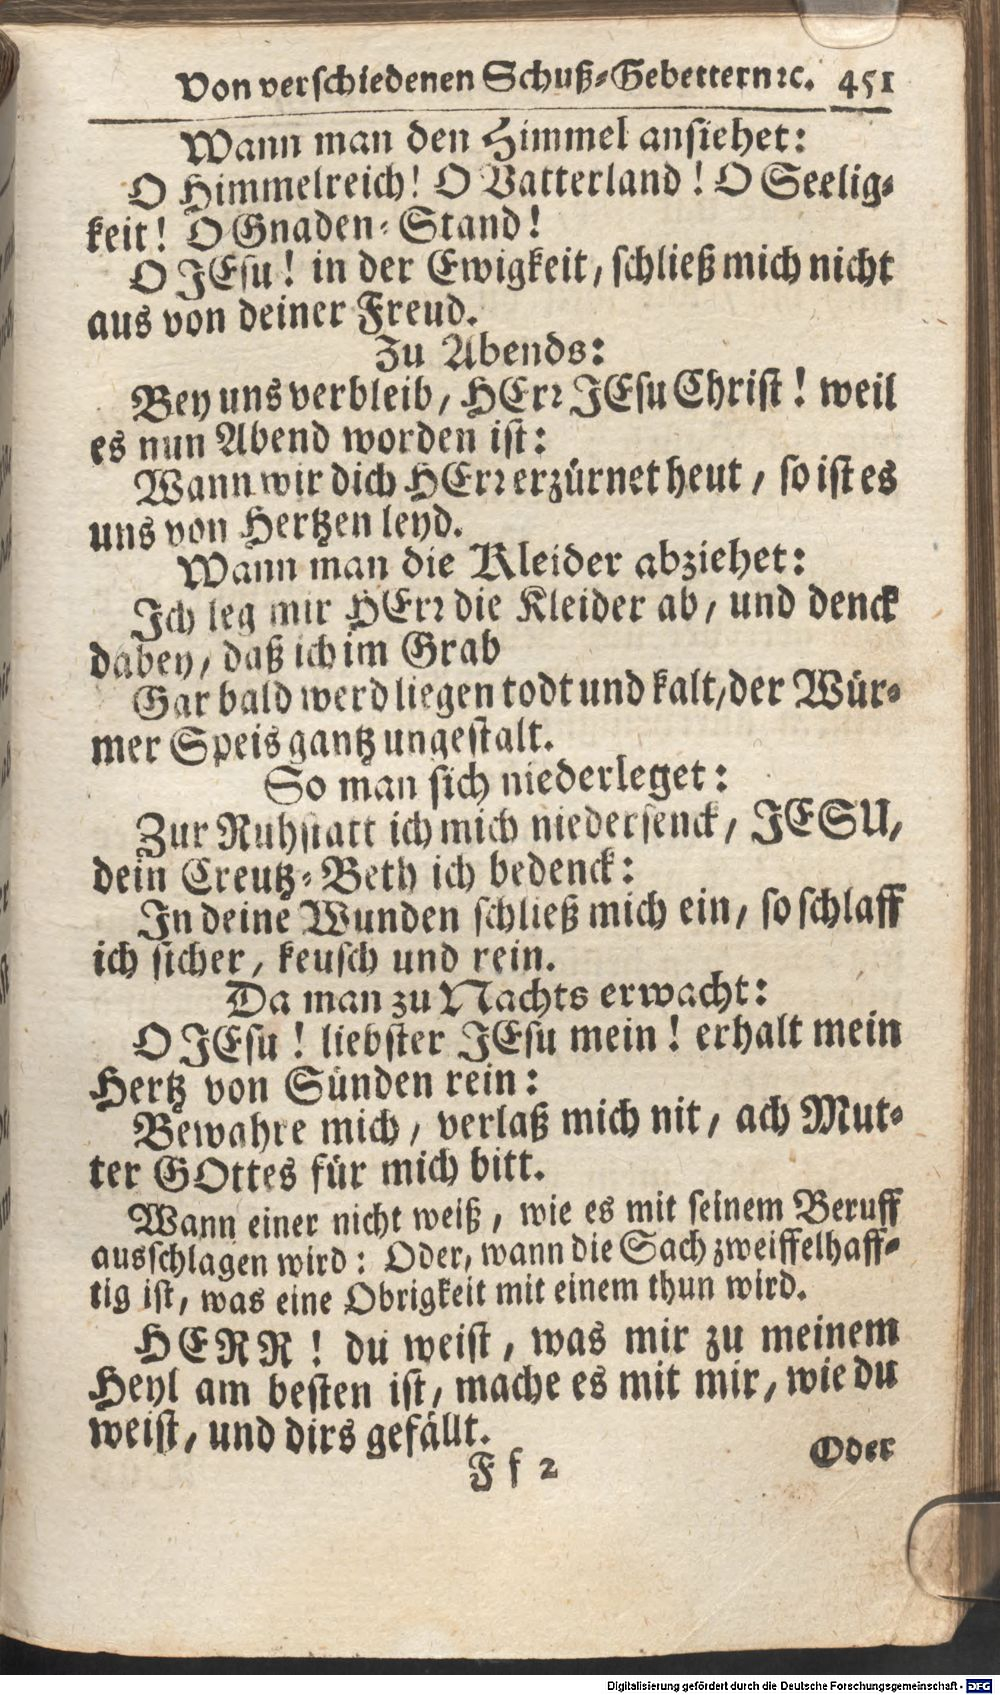 Von verschiedenen Schuß-Gebettern ꝛc. 451
Wann man den Himmel ansiehet:
O Himmelreich! O Vatterland! O Seelig-
keit! O Gnaden-Stand!
O JEsu! in der Ewigkeit, schließ mich nicht
aus von deiner Freud.
Zu Abends:
Bey uns verbleib, HErꝛ JEsu Christ! weil
es nun Abend worden ist:
Wann wir dich HErꝛ erzürnet heut, so ist es
uns von Hertzen leyd.
Wann man die Kleider abziehet:
Ich leg mir HErꝛ die Kleider ab, und denck
dabey, daß ich im Grab
Gar bald werd liegen todt und kalt, der Wür-
mer Speis gantz ungestalt.
So man sich niederleget:
Zur Ruhstatt ich mich niedersenck, JESU,
dein Creutz-Beth ich bedenck:
In deine Wunden schließ mich ein, so schlaff
ich sicher, keusch und rein.
Da man zu Nachts erwacht:
O JEsu! liebster JEsu mein! erhalt mein
Hertz von Sünden rein:
Bewahre mich, verlaß mich nit, ach Mut-
ter GOttes für mich bitt.
Wann einer nicht weiß, wie es mit seinem Beruff
ausschlagen wird: Oder, wann die Sach zweiffelhaff-
tig ist, was eine Obrigkeit mit einem thun wird.
HERR! du weist, was mir zu meinem
Heyl am besten ist, mache es mit mir, wie du
weist, und dirs gefällt.
F f 2 Oder
Digitalisierung gefördert durch die Deutsche Forschungsgemeinschaft - DFG